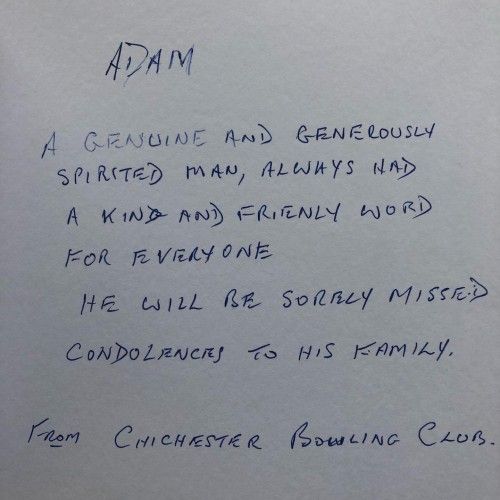 ADAM
A GENUINE AND GENEROUSLY
SPIRITED MAN, ALWAYS HAD
A KIND AND FRIENLY WORD
FOR EVERYONE
HE WILL BE SORELY MISSED
CONDOLENCES TO HIS FAMILY.
FROM CHICHESTER BOWLING CLUB.